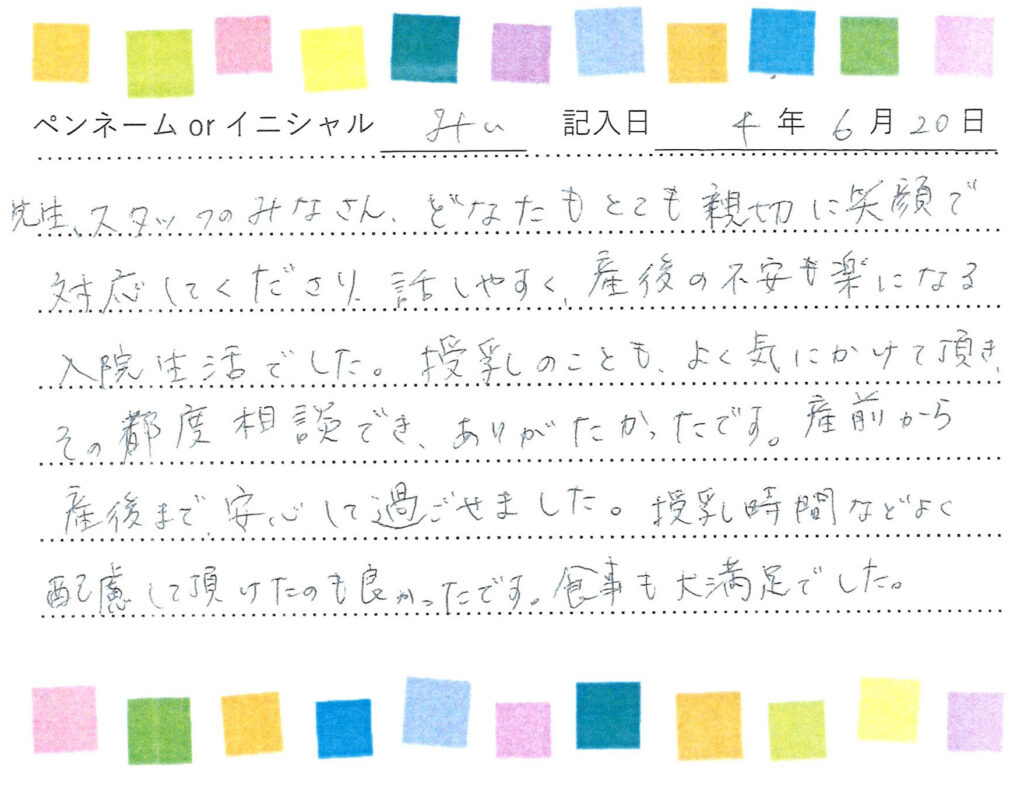 ペンネーム or イニシャル みい 記入日 4年 6月 20日
先生、スタッフのみなさん、どなたもとても親切に笑顔で
対応してくださり、話しやすく、産後の不安も楽になる
入院生活でした。授乳のことも、よく気にかけて頂き、
その都度相談でき、ありがたかったです。産前から
産後まで安心して過ごせました。授乳時間などよく
配慮して頂けたのも良かったです。食事も大満足でした。